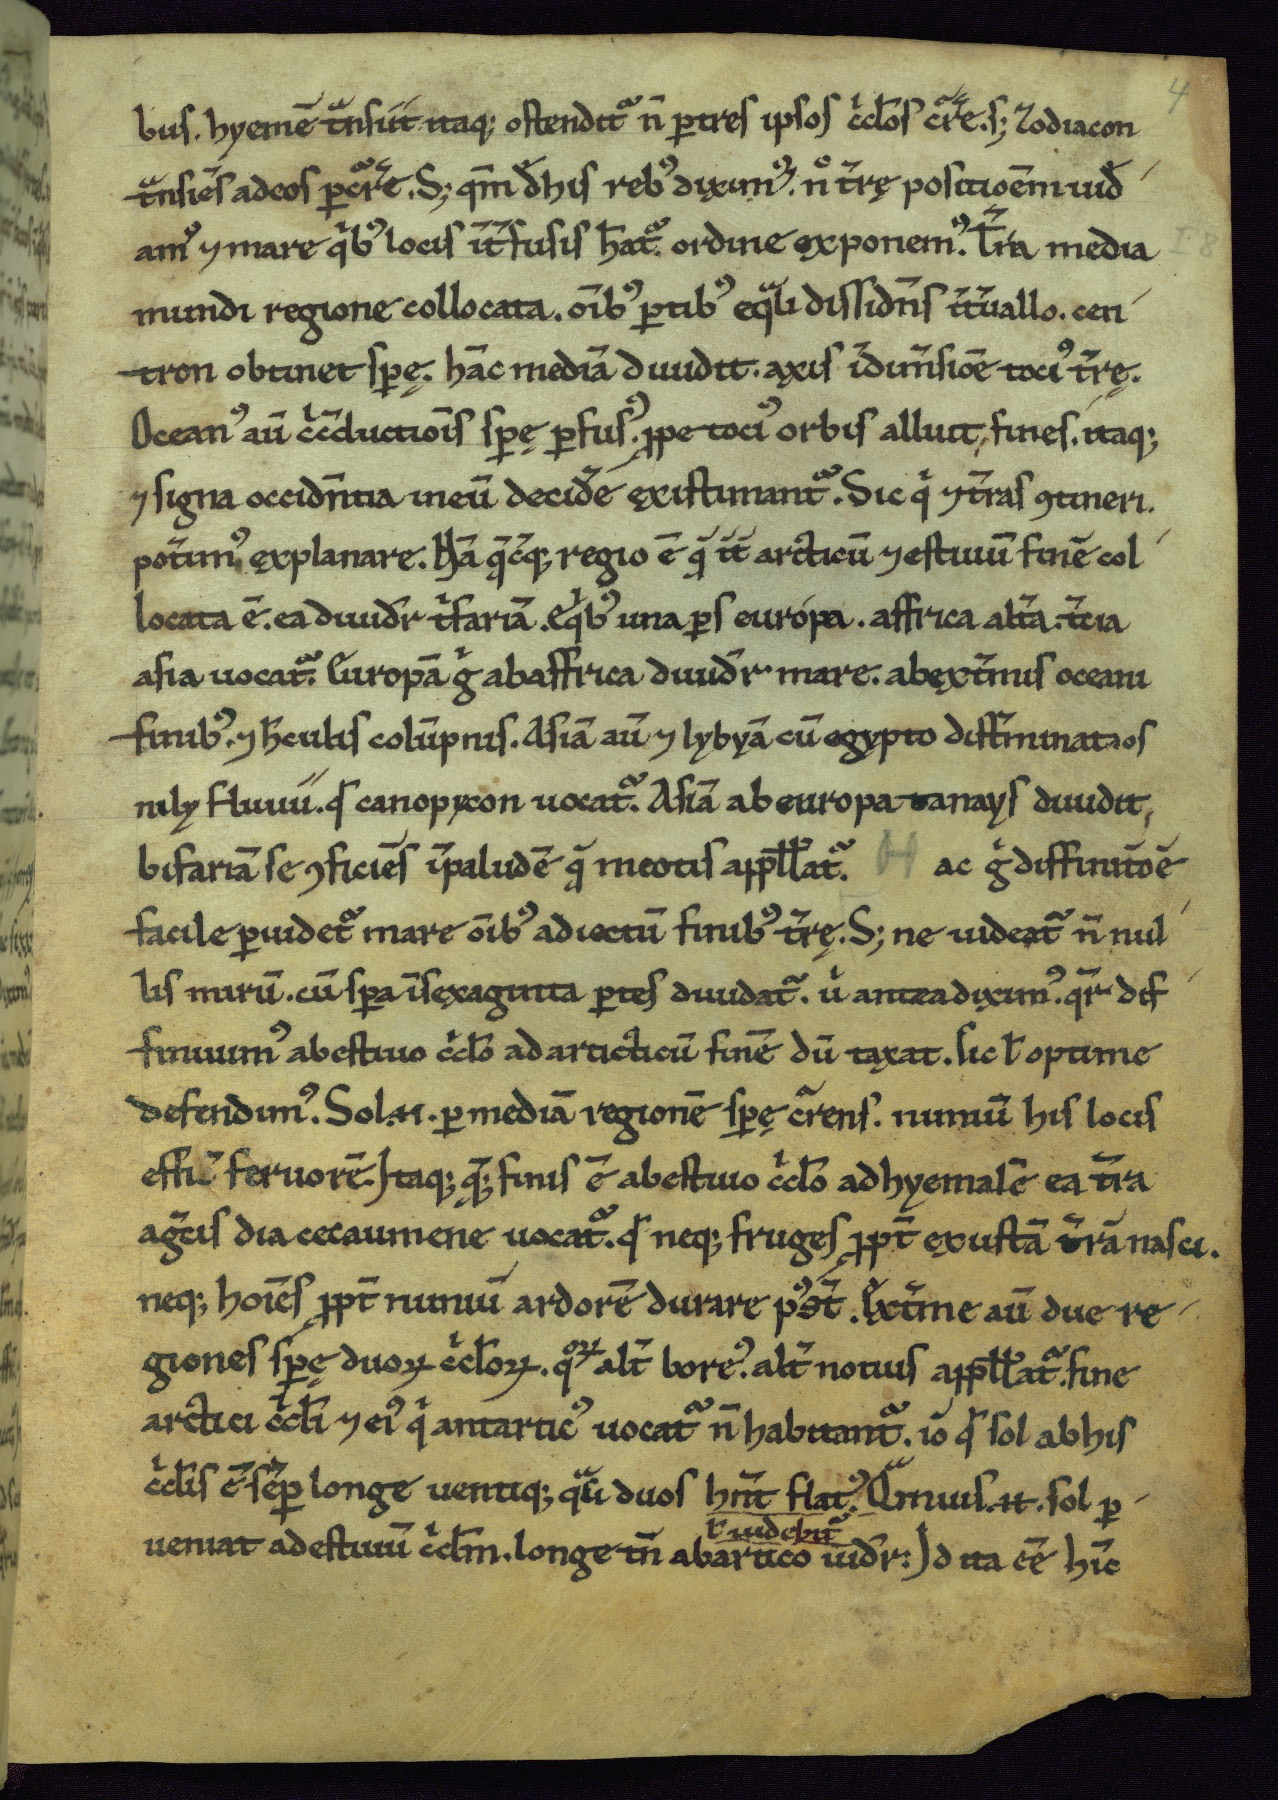 4
bus. hyemē t̄nsiit itaq; ostendit᷑ n̄ ꝑtres ipsos ccl̄os crr̄e. s; Zodiacon
t̄nsiēs adeos ꝑcrr̄e. S; qm̄ dhis reb᾽ diximꝰ. nc̄ t̄rę positioēm uid
amꝰ ⁊ mare qibꝰ locis īt̄fusis hāt᷑. ordine exponemꝰ. Tr̄a media
mundi regione collocata. oīb᾽ ꝑtib᾽ eq̄li dissidn̄s īt̄uallo. cen
tron obtinet sꝑę. hāc mediā diuidit. axis īdim̄sioē toci᾽ t̄rę.
Ocean᾽ aū cc̄ductiōis sꝑę ꝑfus᾽. ꝓpe toci᾽ orbis alluit, fines. itaq;
⁊ signa occidn̄tia ineū decidē existimant᷑. Sic qi ⁊t̄ras ꝯtineri.
pot̄im᾽ explanare. Nā q̄cq; regio ē q̄ īt arcticū ⁊ estiuū finē col
locata ē. ea diuid̄r t̄fariā. eqib᾽ una ꝑs európa. affrica alt̄a. t̄cia
asia uocat᷑. Európā g̊ abaffrica diuid̄r mare. abext̄mis oceani
finib᾽. ⁊ hc̄ulis colūpnis. Asiā aū ⁊ lybyā cū egypto diff̄minat os
nily fluuii. qd̄ canopycon uocat᷑. Asiā ab europa tanays diuidit,
bifariā se ꝯficiēs īpaludē q̄ meotis appll̄at᷑. H ac g̊ diffinitōē
facile ꝑuidet᷑ mare oīb᾽ adiectū finib᾽ t̄rę. S; ne uideat᷑ n̄ nul
lis mirū. cū sꝑa īsexaginta ꝑtes diuidat᷑. ū antea diximꝰ. qr̄ dif
finiuim᾽ abestiuo ccl̄o ad articticū finē dū taxat. sic l̄ optime
defendim᾽. Sol. n. ꝑ mediā regionē sꝑę cr̄ens. nimiū his locis
effic̄ feruorē. Itaq; q̄; finis ē abestiuo ccl̄o ad hyemalē ea t̄ra
ag̊cis dia cecaumene uocat᷑. qd̄ neq; fruges ꝓpt̄ exustā t̄rā nasci.
neq; hoīēs ꝓpt̄ nimiū ardorē durare p᾽s̄t̄. Ext̄me aū due re
giones sꝑę duoꝝ ccl̄oꝝ. qoꝝ alt̄ bore᾽. alt̄ notius appll̄at᷑. fine
arctici ccl̄i ⁊ ei᾽ qi antartic᾽ uocat᷑ n̄ habitant᷑. iō qd̄ sol abhis
ccl̄is ē sēꝑ longe uentiq; qsi duos hn̄t flat᾽. Qmuis. n. sol ꝑ
l̄ uidebit᷑
ueniat ad estiuū ccl̄m. longe tn̄ abartico uid̄r: Id ita ēē hīc